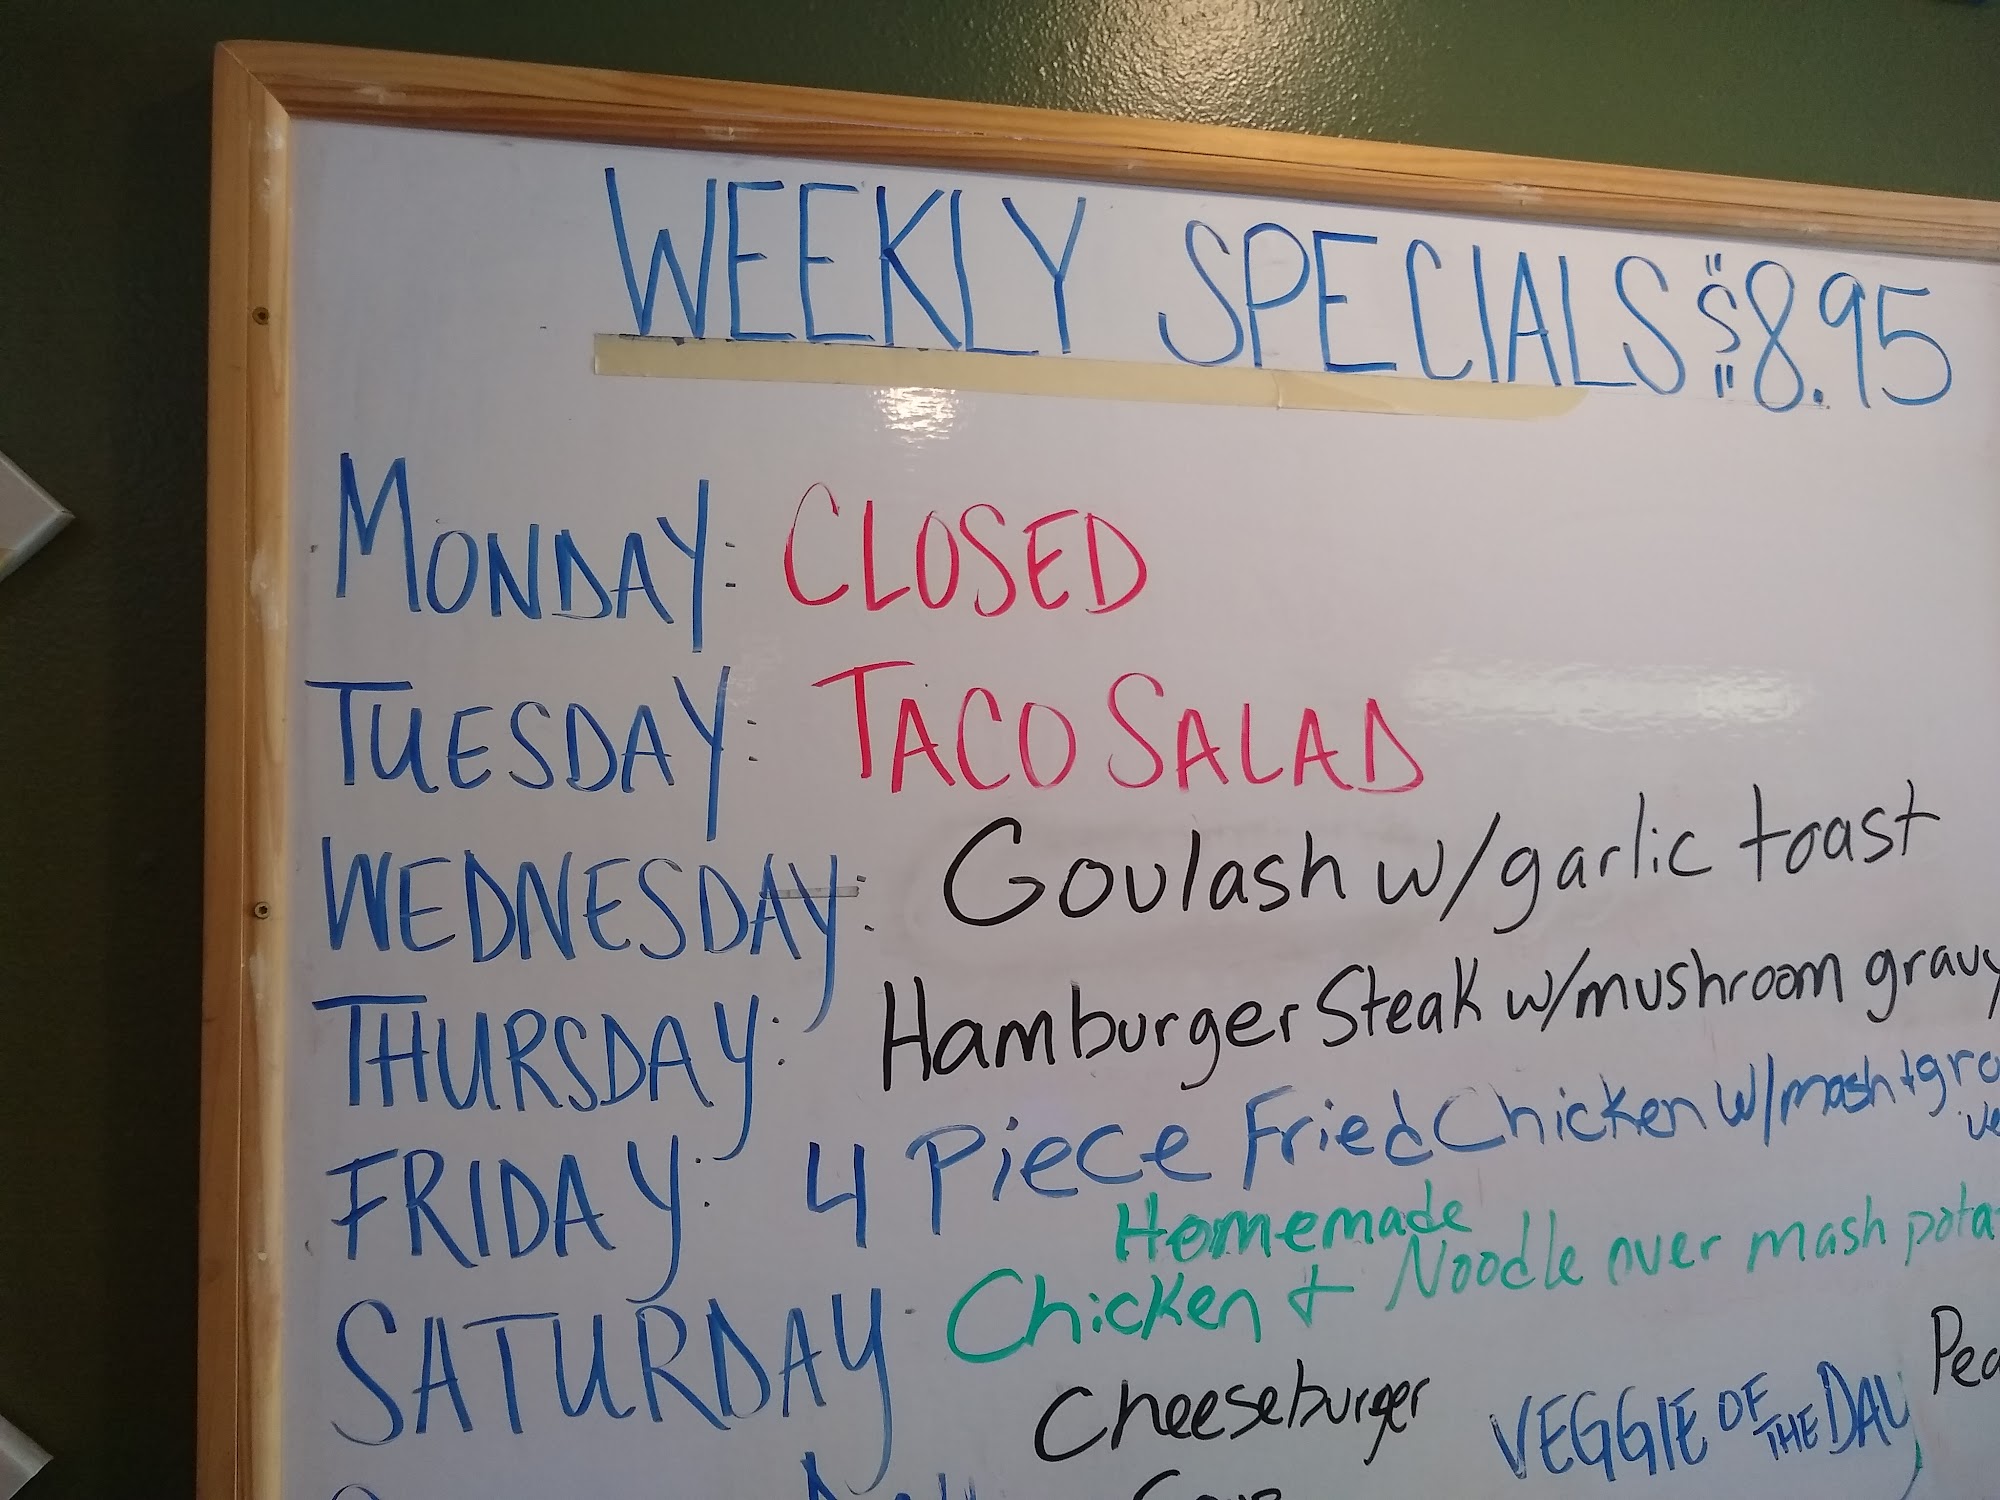 WEEKLY SPECIALS $8.95
MONDAY: CLOSED
TUESDAY: TACO SALAD
WEDNESDAY: Goulash w/garlic toast
THURSDAY: Hamburger Steak w/mushroom gravy
FRIDAY: 4 Piece Fried Chicken w/mash +
Homemade
SATURDAY: Chicken + Noodle over mash
Cheeseburger
VEGGIE OF THE DAY